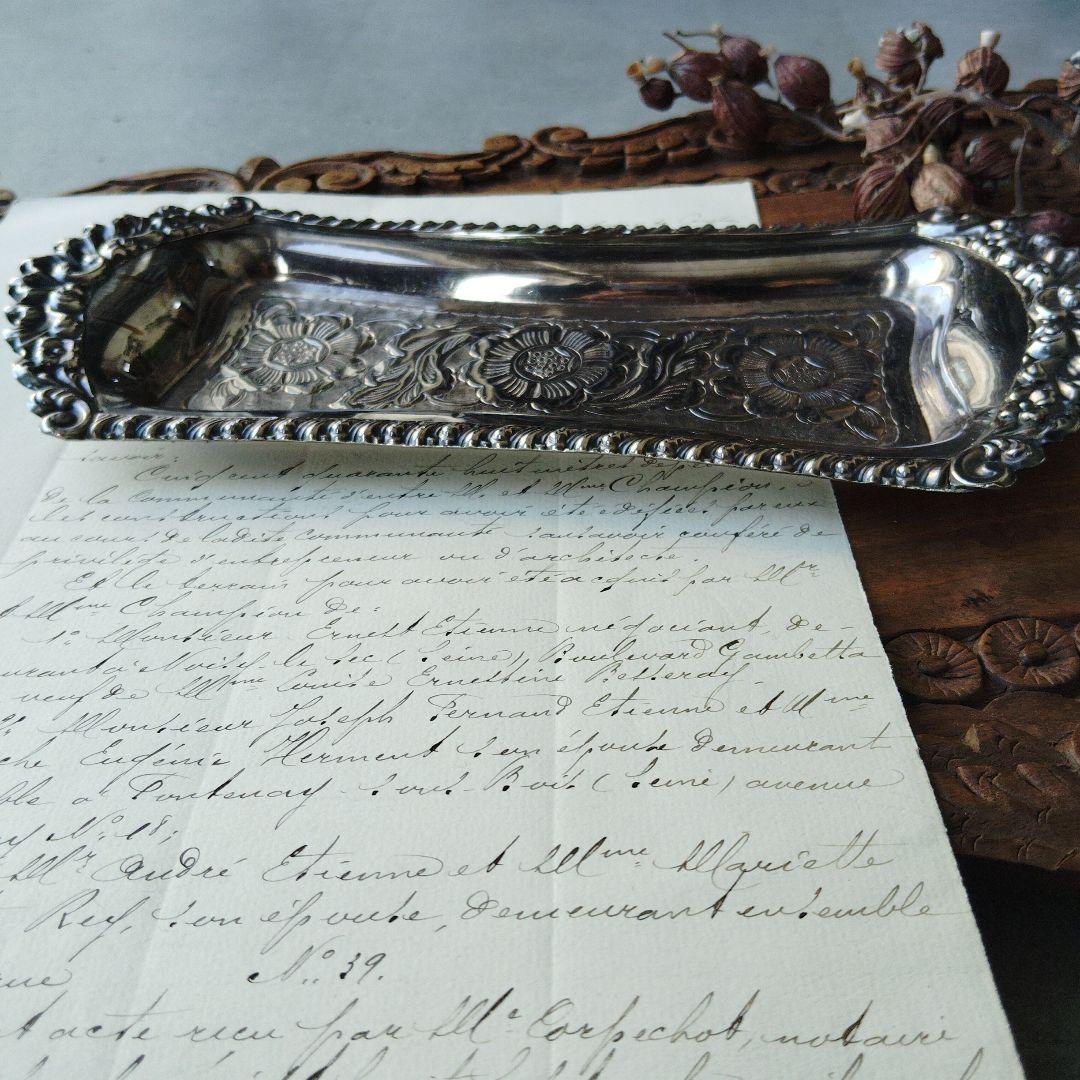 savoir:
Cinq cent quarante huit mètres de
de la communauté d'entre M. et Mme Champion,
les constructions pour avoir été édifiées par eux
au cours de ladite communauté sans avoir conféré de
privilège d'entrepreneur ou d'architecte.
Et le terrain pour avoir été acquis par Mr
Mme Champion de:
1º Monsieur Ernest Etienne négociant, de-
à Noisy-le-Sec (Seine), Boulevard Gambetta
veuf de Mme Louise Ernestine
Monsieur Joseph Fernand Etienne et Mme
Eugénie Herment son épouse demeurant
à Fontenay-sous-Bois (Seine) avenue
No 18;
Mr André Etienne et Mme Mariette
Rey, son épouse, demeurant ensemble
No. 39.
acte reçu par Me Corpechot, notaire